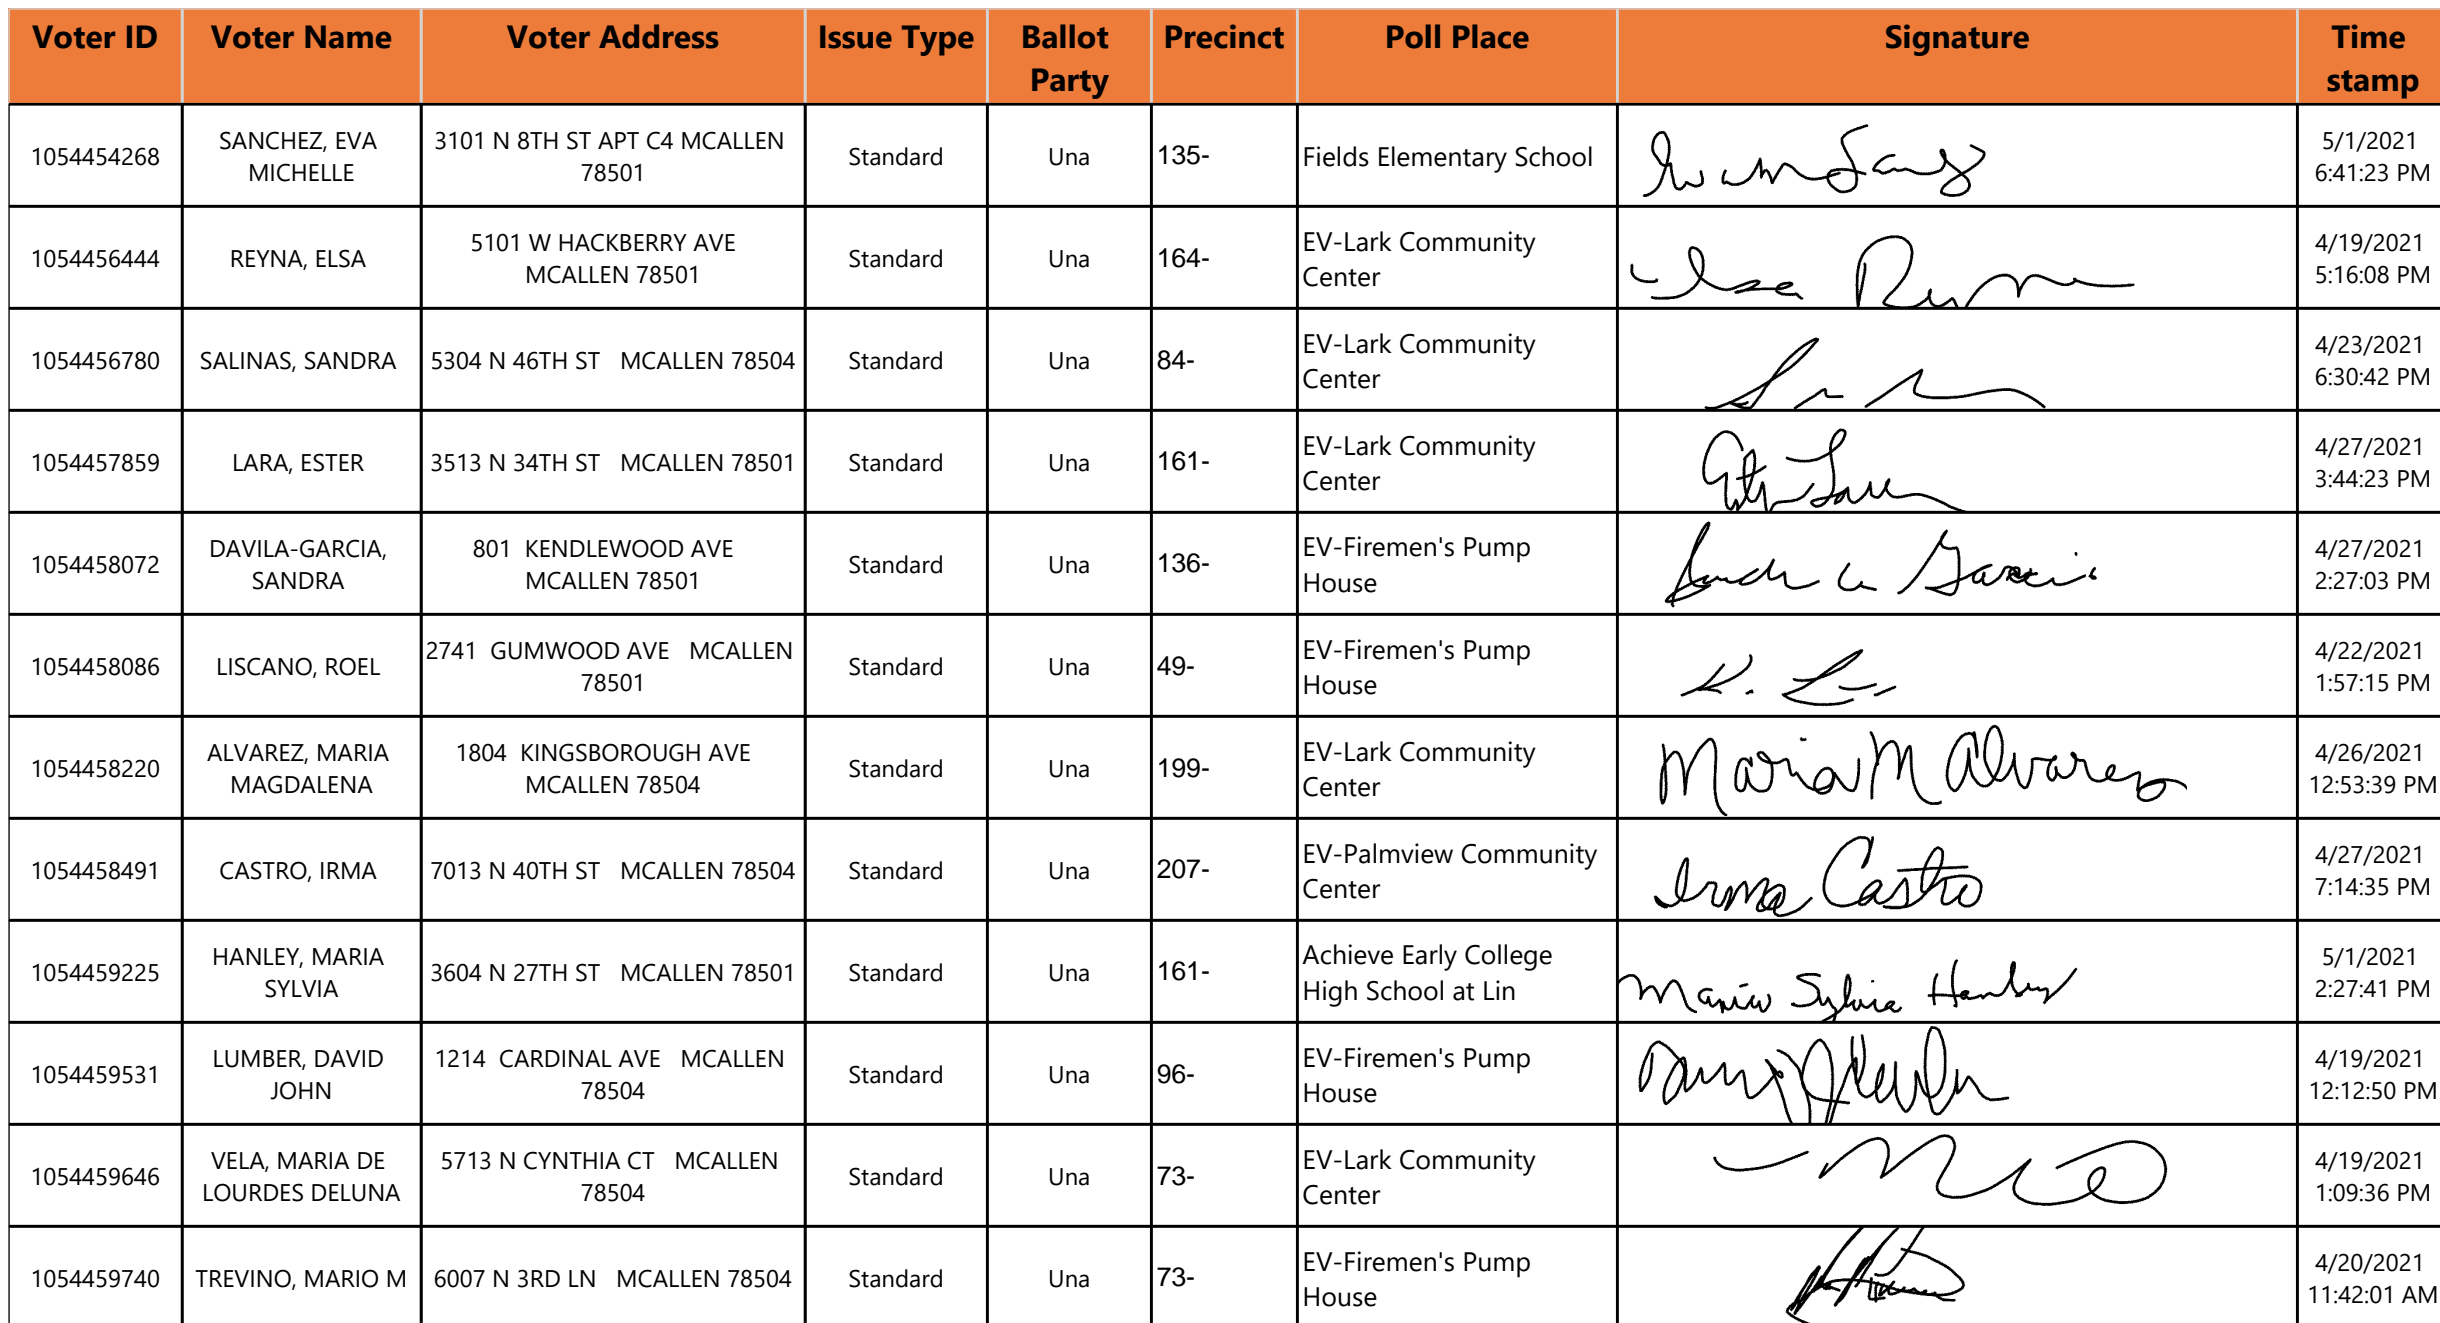 Voter ID Voter Name Voter Address Issue Type Ballot Party Precinct Poll Place Signature Time stamp
1054454268 SANCHEZ, EVA MICHELLE 3101 N 8TH ST APT C4 MCALLEN 78501 Standard Una 135- Fields Elementary School 5/1/2021 6:41:23 PM
1054456444 REYNA, ELSA 5101 W HACKBERRY AVE MCALLEN 78501 Standard Una 164- EV-Lark Community Center 4/19/2021 5:16:08 PM
1054456780 SALINAS, SANDRA 5304 N 46TH ST MCALLEN 78504 Standard Una 84- EV-Lark Community Center 4/23/2021 6:30:42 PM
1054457859 LARA, ESTER 3513 N 34TH ST MCALLEN 78501 Standard Una 161- EV-Lark Community Center 4/27/2021 3:44:23 PM
1054458072 DAVILA-GARCIA, SANDRA 801 KENDLEWOOD AVE MCALLEN 78501 Standard Una 136- EV-Firemen's Pump House Garcia 4/27/2021 2:27:03 PM
1054458086 LISCANO, ROEL 2741 GUMWOOD AVE MCALLEN 78501 Standard Una 49- EV-Firemen's Pump House 4/22/2021 1:57:15 PM
1054458220 ALVAREZ, MARIA MAGDALENA 1804 KINGSBOROUGH AVE MCALLEN 78504 Standard Una 199- EV-Lark Community Center Maria M Alvarez 4/26/2021 12:53:39 PM
1054458491 CASTRO, IRMA 7013 N 40TH ST MCALLEN 78504 Standard Una 207- EV-Palmview Community Center Irma Castro 4/27/2021 7:14:35 PM
1054459225 HANLEY, MARIA SYLVIA 3604 N 27TH ST MCALLEN 78501 Standard Una 161- Achieve Early College High School at Lin Maria Sylvia Hanley 5/1/2021 2:27:41 PM
1054459531 LUMBER, DAVID JOHN 1214 CARDINAL AVE MCALLEN 78504 Standard Una 96- EV-Firemen's Pump House 4/19/2021 12:12:50 PM
1054459646 VELA, MARIA DE LOURDES DELUNA 5713 N CYNTHIA CT MCALLEN 78504 Standard Una 73- EV-Lark Community Center 4/19/2021 1:09:36 PM
1054459740 TREVINO, MARIO M 6007 N 3RD LN MCALLEN 78504 Standard Una 73- EV-Firemen's Pump House 4/20/2021 11:42:01 AM